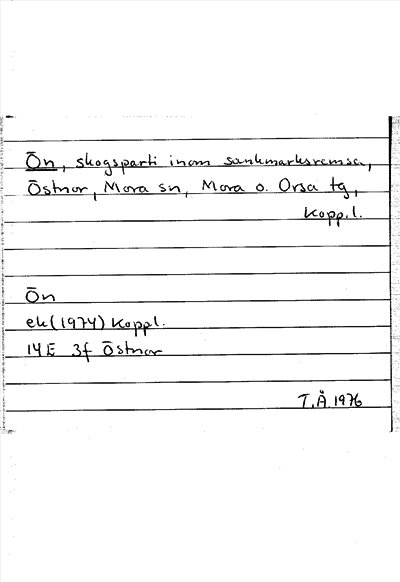 Ön, skogsparti inom sankmarksremsa,
Östnor, Mora sn, Mora o. Orsa tg,
Kopp.l.
Ön
ek (1974) Koppl.
14E 3f Östnor
T.Å 1976